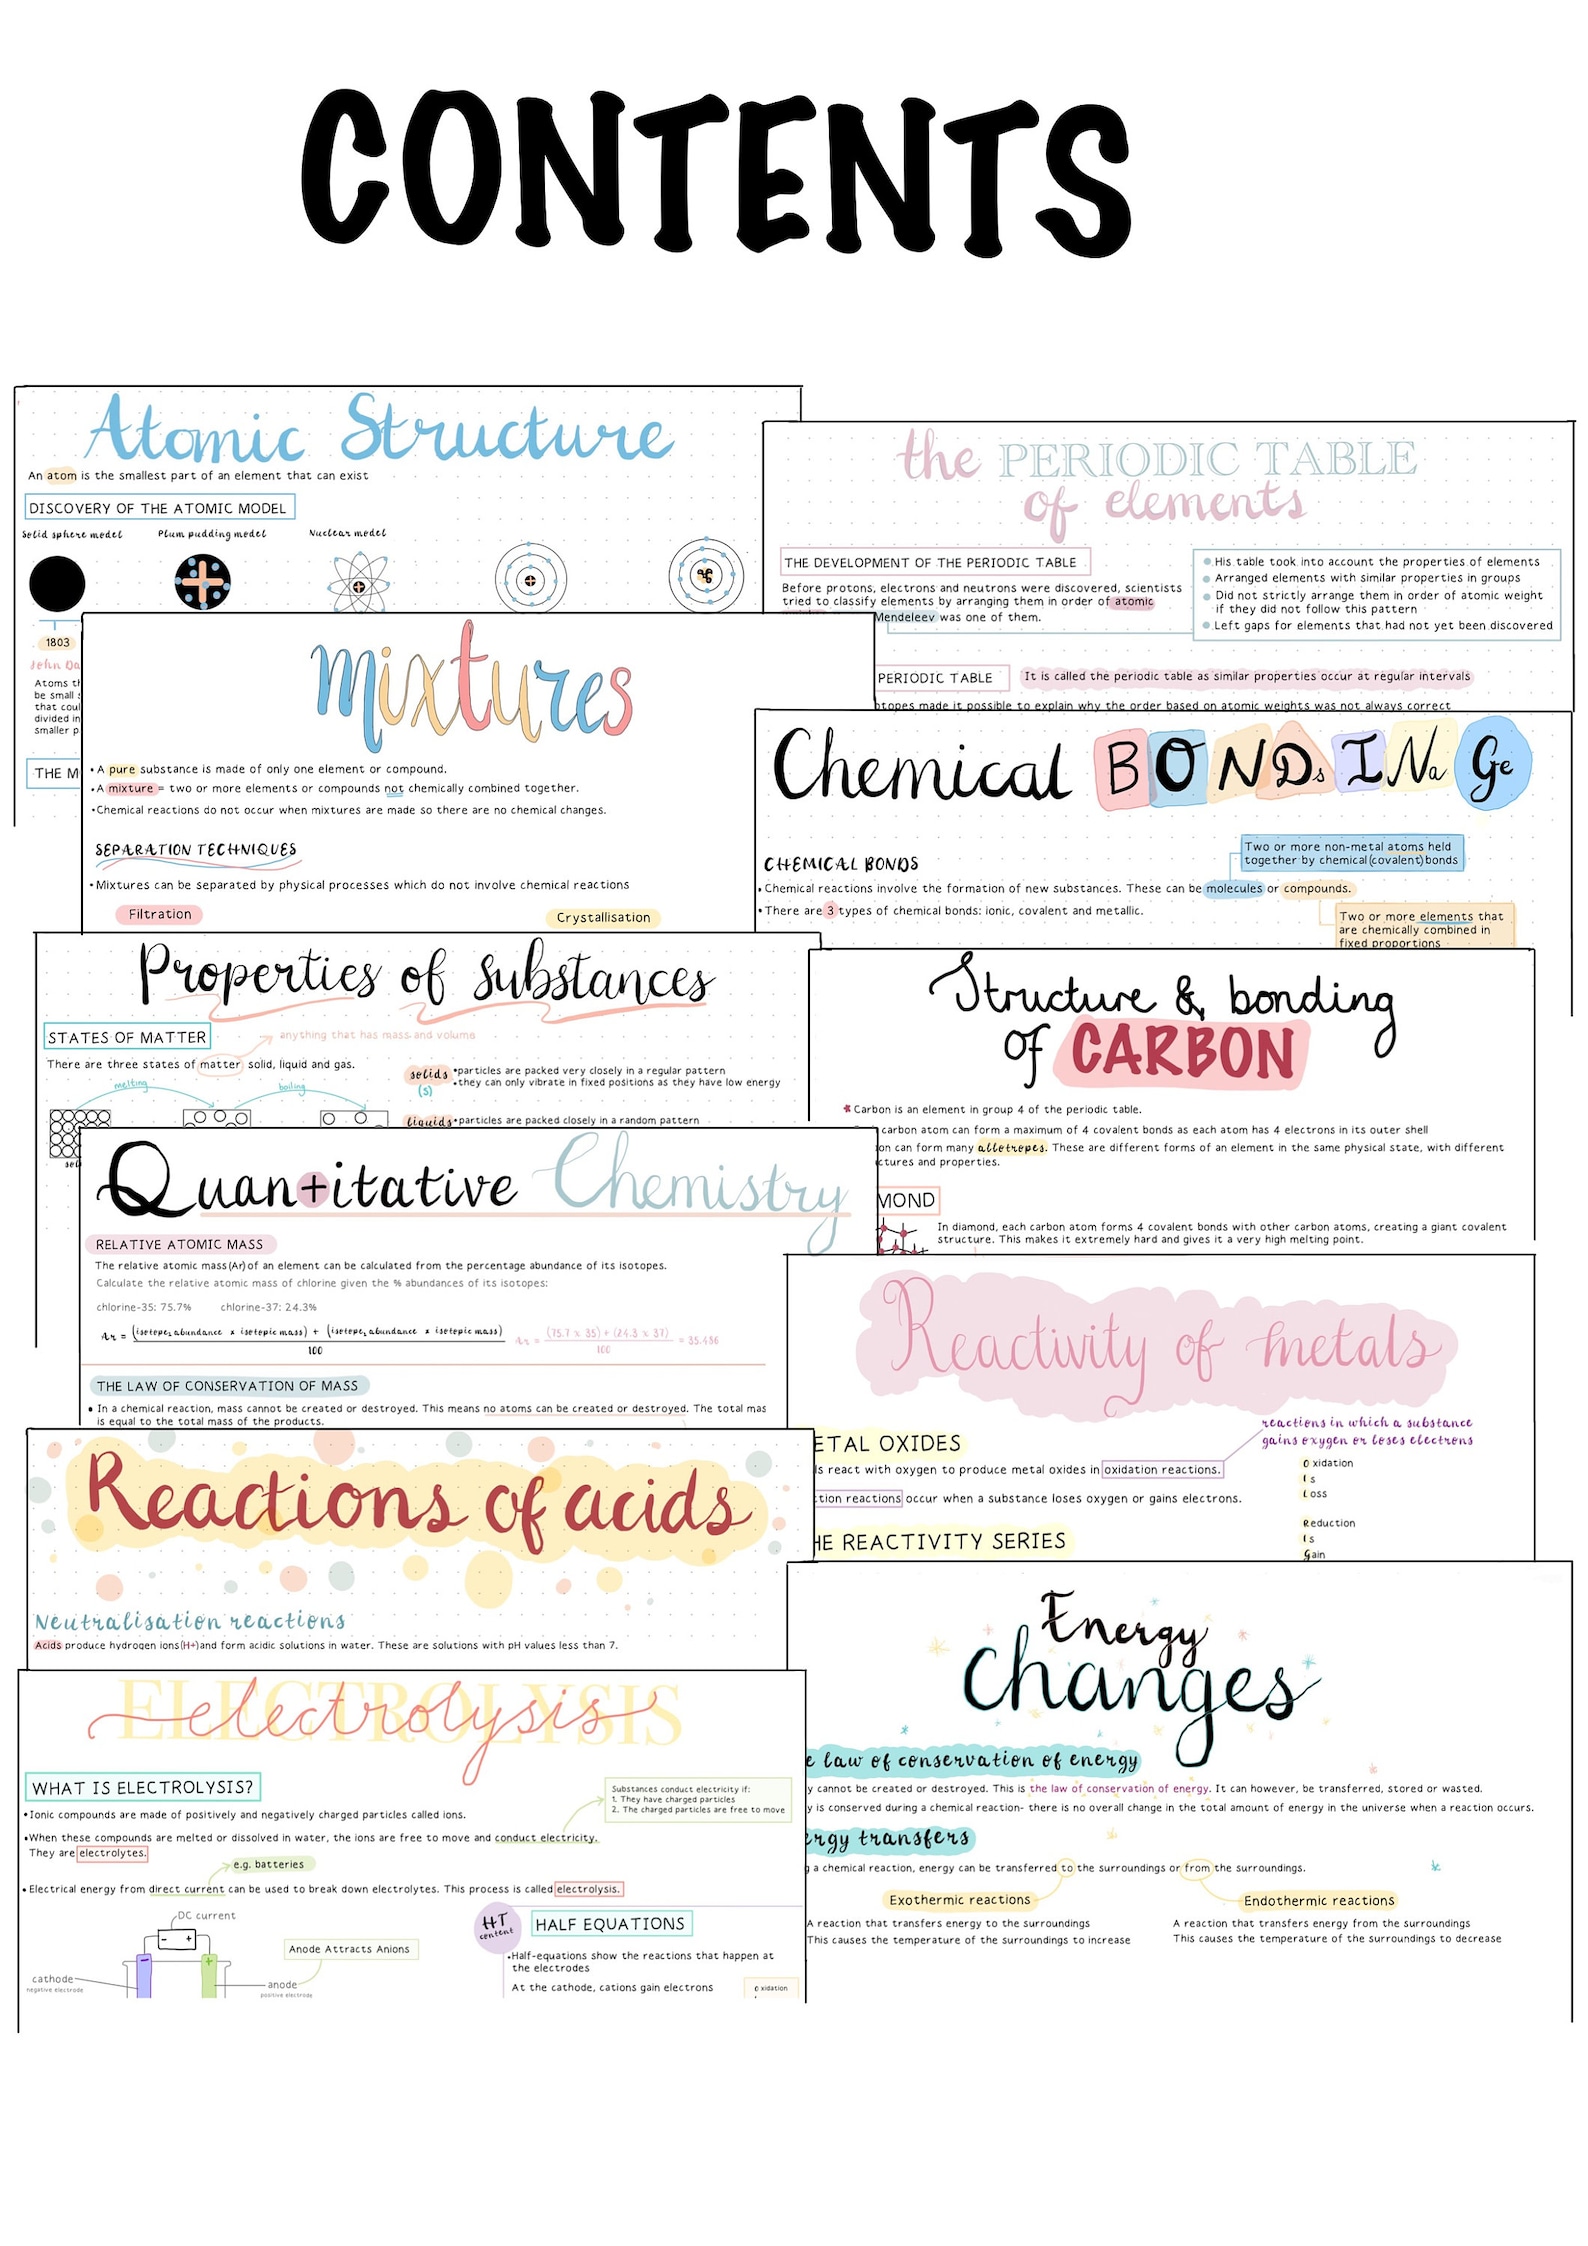 CONTENTS
Atomic Structure
An atom is the smallest part of an element that can exist
DISCOVERY OF THE ATOMIC MODEL
Solid sphere model
Plum pudding model
Nuclear model
1803
John Da
Atoms th
be small
that coul
divided in
smaller p
THE M
the PERIODIC TABLE
of elements
THE DEVELOPMENT OF THE PERIODIC TABLE
Before protons, electrons and neutrons were discovered, scientists
tried to classify elements by arranging them in order of atomic
Mendeleev was one of them.
His table took into account the properties of elements
Arranged elements with similar properties in groups
Did not strictly arrange them in order of atomic weight
if they did not follow this pattern
Left gaps for elements that had not yet been discovered
PERIODIC TABLE
It is called the periodic table as similar properties occur at regular intervals
otopes made it possible to explain why the order based on atomic weights was not always correct
mixtures
• A pure substance is made of only one element or compound.
• A mixture = two or more elements or compounds not chemically combined together.
• Chemical reactions do not occur when mixtures are made so there are no chemical changes.
SEPARATION TECHNIQUES
• Mixtures can be separated by physical processes which do not involve chemical reactions
Filtration
Crystallisation
Chemical BONDsINaGe
CHEMICAL BONDS
Two or more non-metal atoms held
together by chemical (covalent) bonds
• Chemical reactions involve the formation of new substances. These can be molecules or compounds.
• There are 3 types of chemical bonds: ionic, covalent and metallic.
Two or more elements that
are chemically combined in
fixed proportions
Properties of substances
STATES OF MATTER
anything that has mass and volume
There are three states of matter solid, liquid and gas.
melting
boiling
sol
solids
(s)
• particles are packed very closely in a regular pattern
• they can only vibrate in fixed positions as they have low energy
liquids • particles are packed closely in a random pattern
Structure & bonding
of CARBON
* Carbon is an element in group 4 of the periodic table.
carbon atom can form a maximum of 4 covalent bonds as each atom has 4 electrons in its outer shell
on can form many allotropes. These are different forms of an element in the same physical state, with different
ctures and properties.
MOND
In diamond, each carbon atom forms 4 covalent bonds with other carbon atoms, creating a giant covalent
structure. This makes it extremely hard and gives it a very high melting point.
Quan+itative Chemistry
RELATIVE ATOMIC MASS
The relative atomic mass (Ar) of an element can be calculated from the percentage abundance of its isotopes.
Calculate the relative atomic mass of chlorine given the % abundances of its isotopes:
chlorine-35: 75.7% chlorine-37: 24.3%
Ar = (isotope₁ abundance x isotopic mass) + (isotope₂ abundance x isotopic mass)
100
Ar = (75.7 x 35) + (24.3 x 37) = 35.486
100
THE LAW OF CONSERVATION OF MASS
• In a chemical reaction, mass cannot be created or destroyed. This means no atoms can be created or destroyed. The total mas
is equal to the total mass of the products.
Reactivity of metals
ETAL OXIDES
reactions in which a substance
gains oxygen or loses electrons
ls react with oxygen to produce metal oxides in oxidation reactions.
ction reactions occur when a substance loses oxygen or gains electrons.
Oxidation
Is
Loss
Reduction
Is
Gain
HE REACTIVITY SERIES
Reactions of acids
Neutralisation reactions
Acids produce hydrogen ions (H+) and form acidic solutions in water. These are solutions with pH values less than 7.
Energy
changes
e law of conservation of energy
y cannot be created or destroyed. This is the law of conservation of energy. It can however, be transferred, stored or wasted.
y is conserved during a chemical reaction- there is no overall change in the total amount of energy in the universe when a reaction occurs.
ergy transfers
g a chemical reaction, energy can be transferred to the surroundings or from the surroundings.
Exothermic reactions
A reaction that transfers energy to the surroundings
This causes the temperature of the surroundings to increase
Endothermic reactions
A reaction that transfers energy from the surroundings
This causes the temperature of the surroundings to decrease
ELECTROLYSIS
electrolysis
WHAT IS ELECTROLYSIS?
Substances conduct electricity if:
1. They have charged particles
2. The charged particles are free to move
• Ionic compounds are made of positively and negatively charged particles called ions.
• When these compounds are melted or dissolved in water, the ions are free to move and conduct electricity.
They are electrolytes.
e.g. batteries
• Electrical energy from direct current can be used to break down electrolytes. This process is called electrolysis.
DC current
- +
- +
Anode Attracts Anions
cathode
negative electrode
anode
positive electrode
HT
content
HALF EQUATIONS
• Half-equations show the reactions that happen at
the electrodes
At the cathode, cations gain electrons
Oxidation